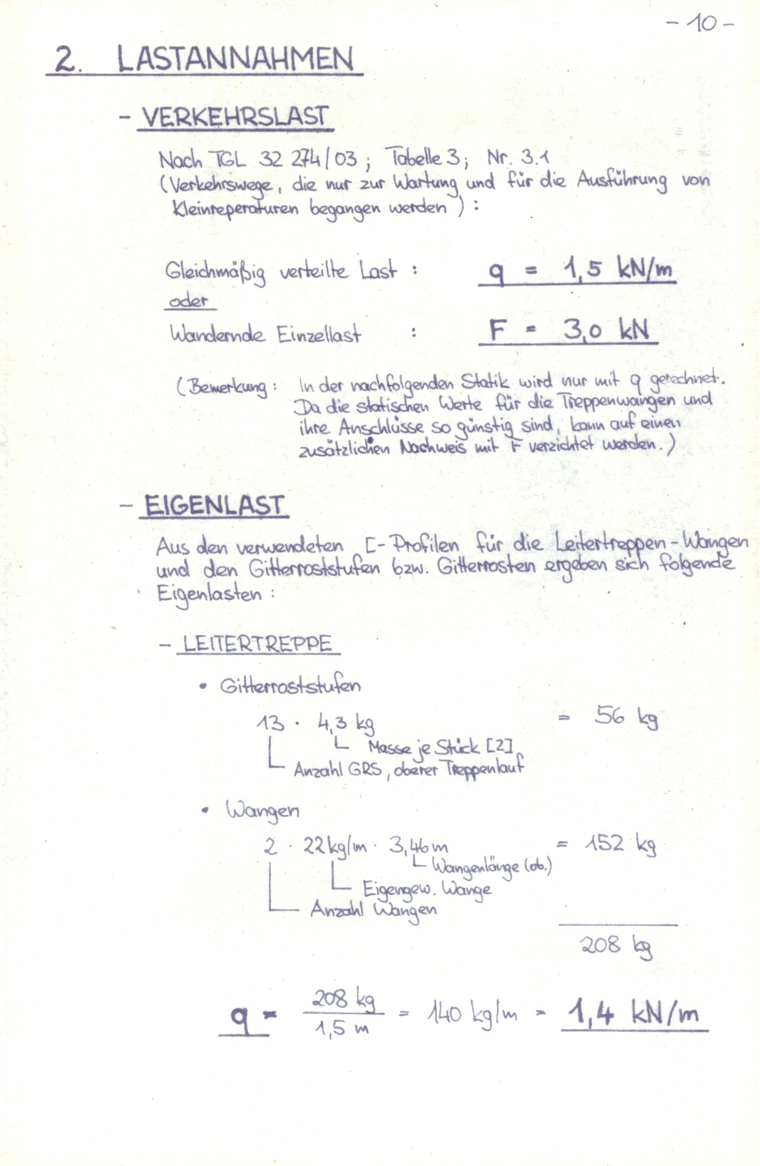 - 10 -
2. LASTANNAHMEN
- VERKEHRSLAST
Nach TGL 32 274/03 ; Tabelle 3 ; Nr. 3.1
(Verkehrswege, die nur zur Wartung und für die Ausführung von
Kleinreperaturen begangen werden ) :
Gleichmäßig verteilte Last : q = 1,5 kN/m
oder
Wandernde Einzellast : F = 3,0 kN
(Bemerkung : In der nachfolgenden Statik wird nur mit q gerechnet.
Da die statischen Werte für die Treppenwangen und
ihre Anschlüsse so günstig sind, kann auf einen
zusätzlichen Nachweis mit F verzichtet werden.)
- EIGENLAST
Aus den verwendeten [- Profilen für die Leitertreppen - Wangen
und den Gitterroststufen bzw. Gitterrosten ergeben sich folgende
Eigenlasten :
- LEITERTREPPE
• Gitterroststufen
13 · 4,3 kg = 56 kg
Masse je Stück [2]
Anzahl GRS, oberer Treppenlauf
• Wangen
2 · 22 kg/m · 3,46 m = 152 kg
Wangenlänge (ob.)
Eigengew. Wange
Anzahl Wangen
208 kg
q = 208 kg / 1,5 m = 140 kg/m = 1,4 kN/m